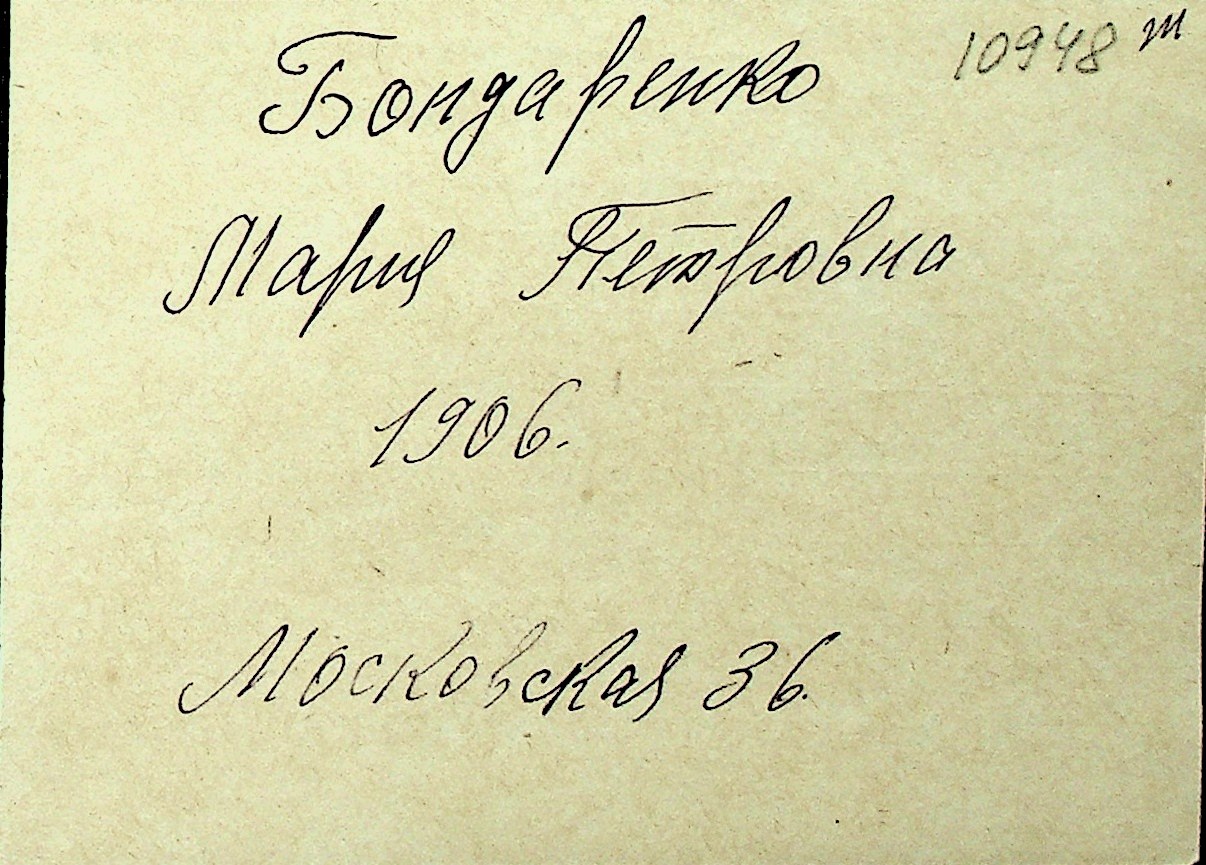 10948 т
Бондаренко
Мария Петровна
1906.
Московская 36.